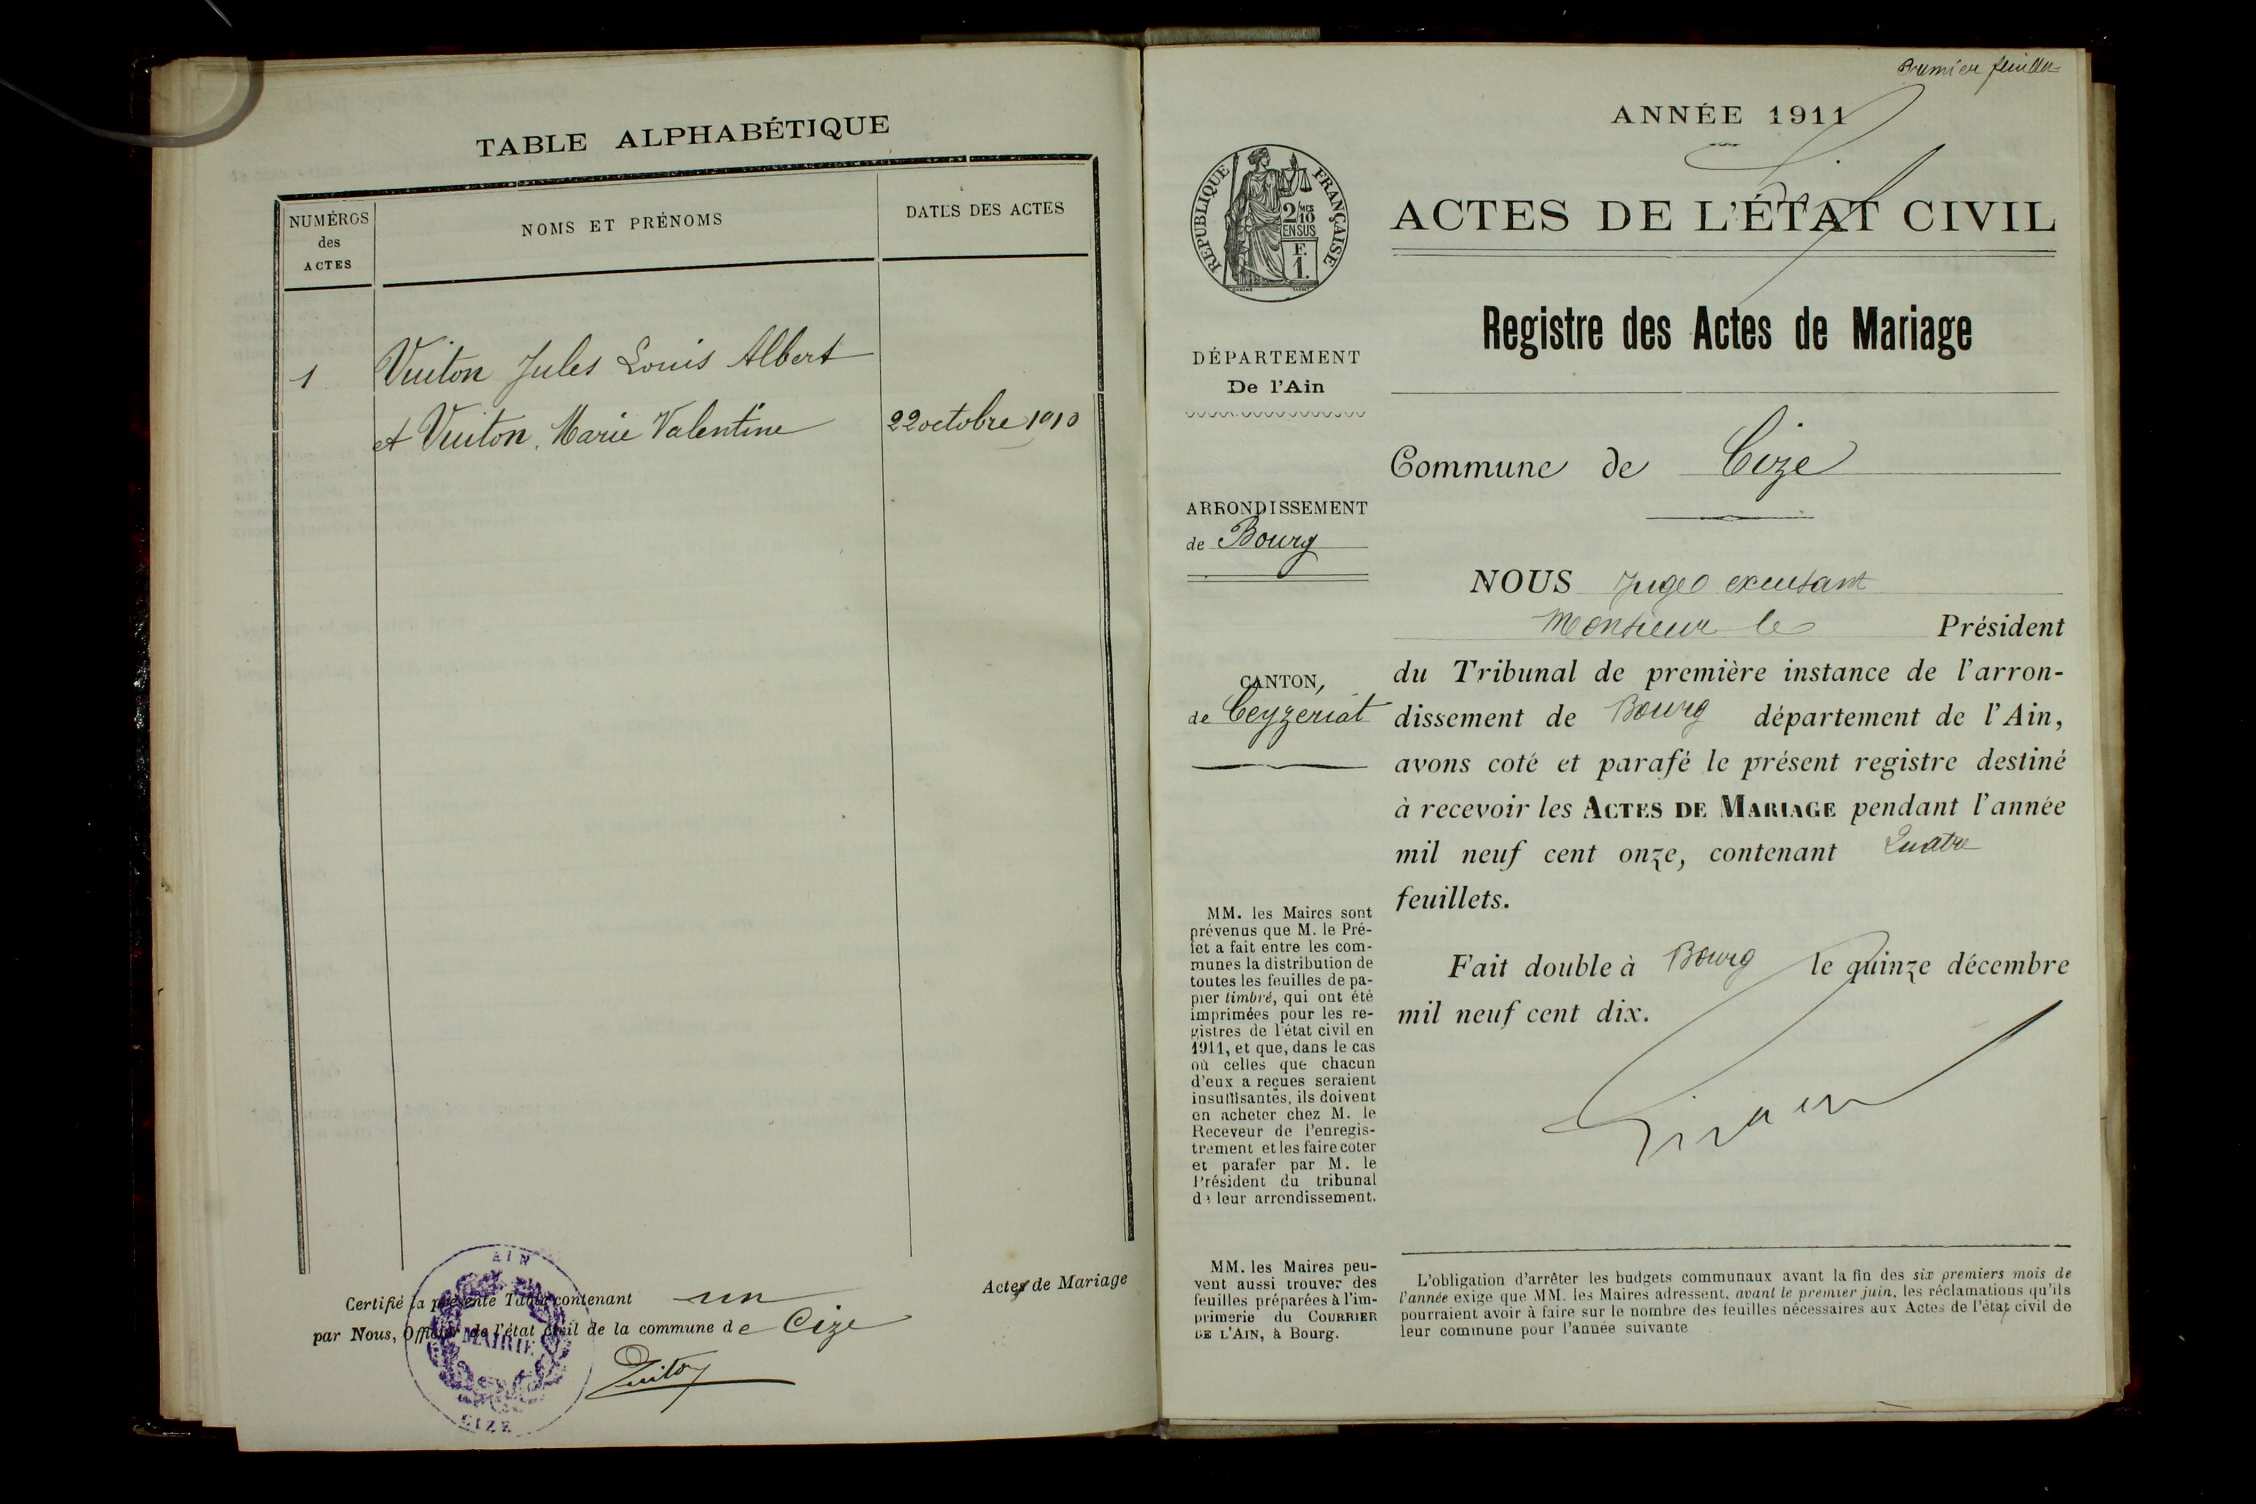 TABLE ALPHABÉTIQUE
NUMÉROS
des
ACTES
NOMS ET PRÉNOMS
DATES DES ACTES
1 Vuiton Jules Louis Albert
et Vuiton, Marie Valentine 22 octobre 1910
Certifié la présente Table contenant un Actes de Mariage
par Nous, Officier de l'état civil de la commune de Cize
AIN
MAIRIE
CIZE
Vuiton
Premier feuillet
ANNÉE 1911
RÉPUBLIQUE FRANÇAISE
2/MES
10
EN SUS
F.
1.
ACTES DE L'ÉTAT CIVIL
Registre des Actes de Mariage
DÉPARTEMENT
De l'Ain
Commune de Cize
ARRONDISSEMENT
de Bourg
CANTON,
de Ceyzeriat
NOUS Juge
Monsieur le Président
du Tribunal de première instance de l'arron-
dissement de Bourg département de l'Ain,
avons coté et parafé le présent registre destiné
à recevoir les ACTES DE MARIAGE pendant l'année
mil neuf cent onze, contenant Quatre
feuillets.
Fait double à Bourg le quinze décembre
mil neuf cent dix.
MM. les Maires sont
prévenus que M. le Pré-
fet a fait entre les com-
munes la distribution de
toutes les feuilles de pa-
pier timbré, qui ont été
imprimées pour les re-
gistres de l'état civil en
1911, et que, dans le cas
où celles que chacun
d'eux a reçues seraient
insuffisantes, ils doivent
en acheter chez M. le
Receveur de l'enregis-
trement et les faire coter
et parafer par M. le
Président du tribunal
de leur arrondissement.
MM. les Maires peu-
vent aussi trouver des
feuilles préparées à l'im-
primerie du COURRIER
DE L'AIN, à Bourg.
L'obligation d'arrêter les budgets communaux avant la fin des six premiers mois de
l'année exige que MM. les Maires adressent, avant le premier juin, les réclamations qu'ils
pourraient avoir à faire sur le nombre des feuilles nécessaires aux Actes de l'état civil de
leur commune pour l'année suivante